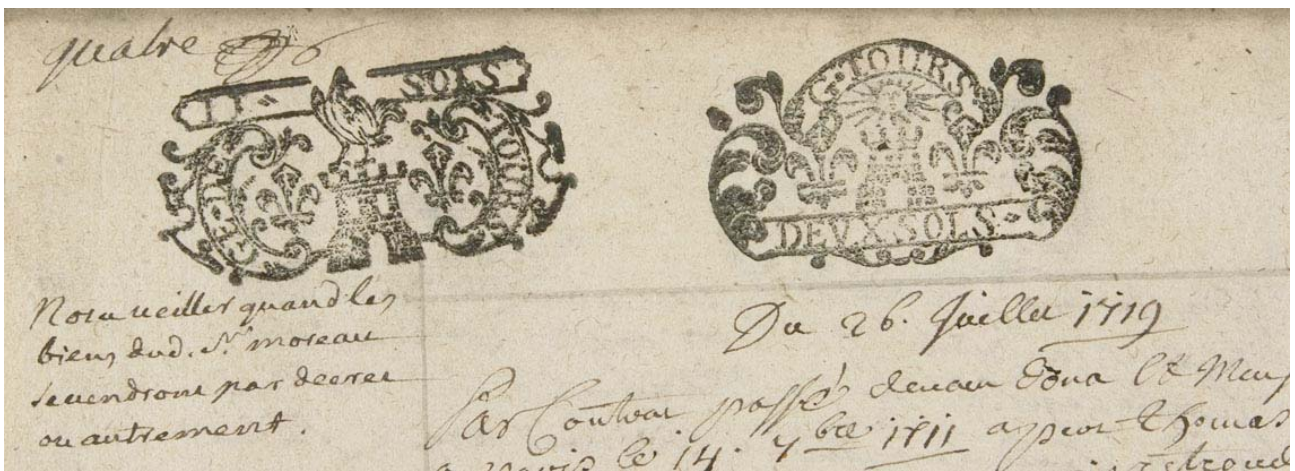 quatre
II · SOLS
GE · DE TOURS
G · TOURS ·
DEVX SOLS ·
Nota veiller quand les
biens dud. Sr. moreau
se vendront par decret
ou autrement.
Du 26. Juillet 1719
Par Contrat passé devant
a paris le 14. 7bre 1711 Thomas